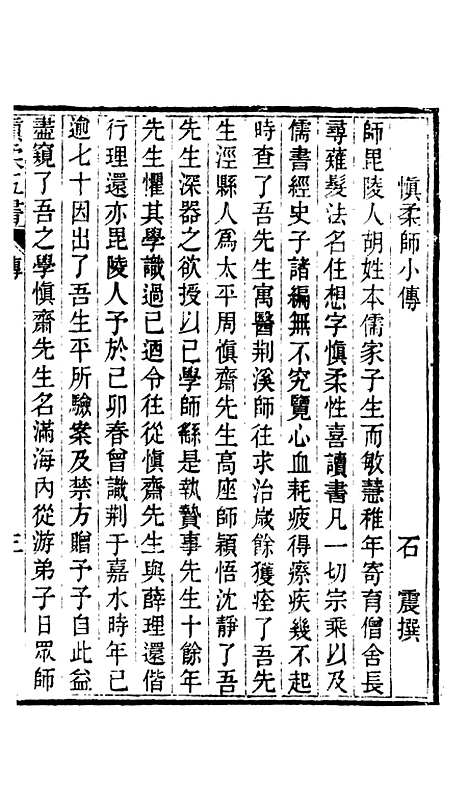 慎柔師小傳
石震撰
師毘陵人胡姓本儒家子生而敏慧稚年寄育僧舍長
尋薙髮法名住想字慎柔性喜讀書凡一切宗乘以及
儒書經史子諸編無不究覽心血耗疲得瘵疾幾不起
時查了吾先生寓醫荆溪師往求治歲餘獲痊了吾先
生涇縣人爲太平周慎齋先生高座師穎悟沈靜了吾
先生深器之欲授以己學師繇是執贄事先生十餘年
先生懼其學識過己迺令往從慎齋先生與薛理還偕
行理還亦毘陵人予於己卯春曾識荆于嘉水時年已
逾七十因出了吾生平所驗案及禁方贈予予自此益
盡窺了吾之學慎齋先生名滿海內從游弟子日眾師
慎柔五書
傳
三